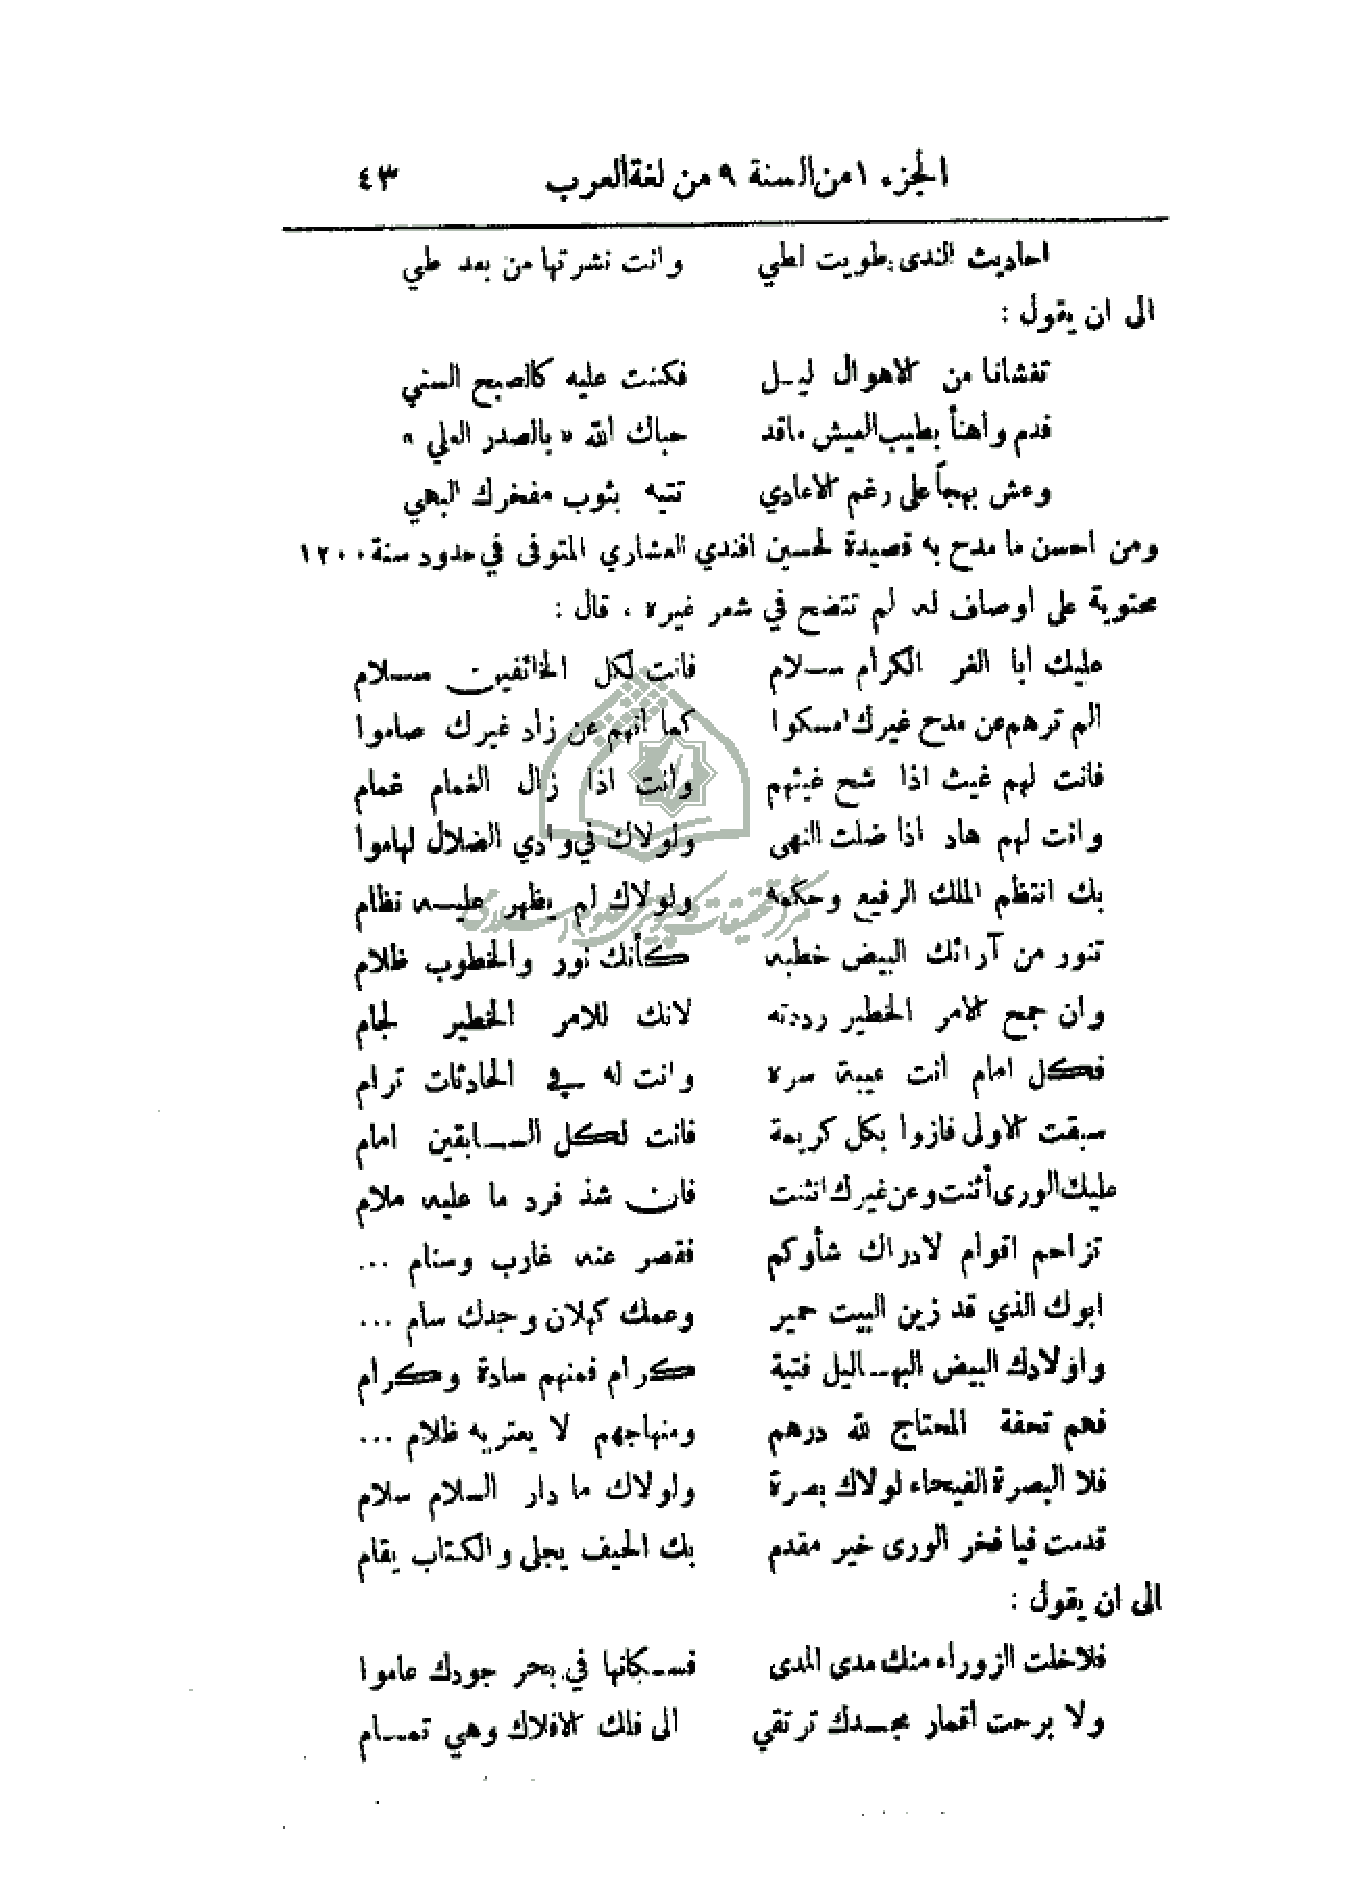 الجزء ١ من السنة ٩ من لغة العرب ٤٣
احاديث الندى طويت لطي وانت نشرتها من بعد طي
الى ان يقول :
تغشانا من الاهوال ليـل فكنت عليه كالصبح السني
فدم واهنأ بطيب العيش ماقد حباك الله « بالصدر العلي »
وعش بهجاً على رغم الاعادي تتيه بثوب مفخرك البهي
ومن احسن ما مدح به قصيدة لحسين افندي العشاري المتوفى في حدود سنة ١٢٠٠
محتوية على اوصاف له لم تتضح في شعر غيره ، قال :
عليك أبا الغر الكرام ســلام فانت لكل الخائفين ســلام
الم ترهم عن مدح غيرك امسكوا كما انهم عن زاد غيرك صاموا
فانت لهم غيث اذا شح غيثهم وانت اذا زال الغمام غمام
وانت لهم هاد اذا ضلت النهى ولولاك في وادي الضلال لهاموا
بك انتظم الملك الرفيع وحكمه ولولاك لم يظهر عليــه نظام
تنور من آرائك البيض خطبه كأنك نور والخطوب ظلام
وان جمح الامر الخطير رددته لانك للامر الخطير لجام
فكل امام انت عيبة سره وانت له في الحادثات ترام
سبقت الاولى فازوا بكل كريمة فانت لكل الســابقين امام
عليك الورى أثنت وعن غيرك انثنت فان شذ فرد ما عليه ملام
تزاحم اقوام لادراك شأوكم فقصر عنه غارب وسنام ...
ابوك الذي قد زين البيت حمير وعمك كهلان وجدك سام ...
واولادك البيض البهــاليل فتية كرام فمنهم سادة وكرام
فهم تحفة المحتاج لله درهم ومنهاجهم لا يعتريه ظلام ...
فلا البصرة الفيحاء لولاك بصرة ولولاك ما دار السلام سلام
قدمت فيا فخر الورى خير مقدم بك الحيف يجلى والكتاب يقام
الى ان يقول :
فلاخلت الزوراء منك مدى المدى فســكانها في بحر جودك عاموا
ولا برحت أقمار مجــدك ترتقي الى فلك الافلاك وهي تمــام